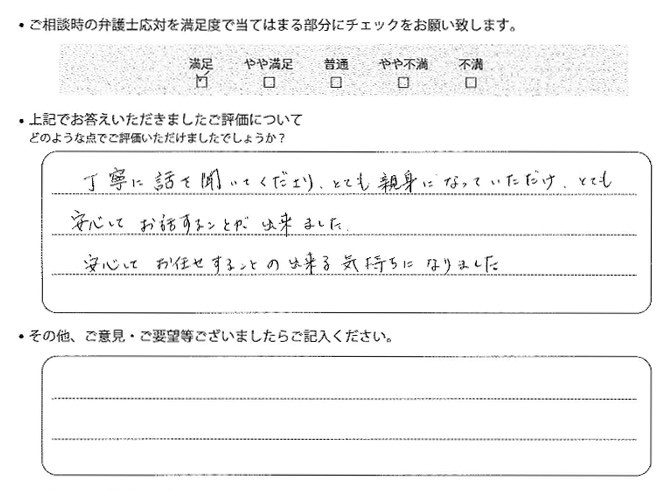 • ご相談時の弁護士応対を満足度で当てはまる部分にチェックをお願い致します。
満足 やや満足 普通 やや不満 不満
☑ □ □ □ □
• 上記でお答えいただきましたご評価について
どのような点でご評価いただけましたでしょうか？
丁寧に話を聞いてくださり、とても親身になっていただけ、とても
安心してお話することが出来ました。
安心してお任せすることの出来る気持ちになりました
• その他、ご意見・ご要望等ございましたらご記入ください。